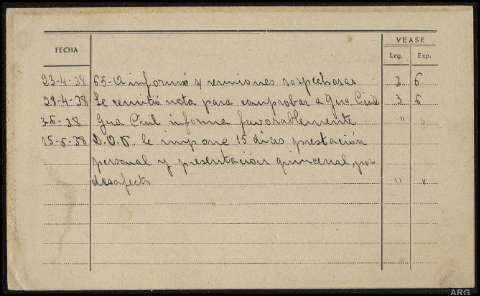 VEASE
FECHA Leg. Exp.
23-4-38 65-12 informó y reuniones sospechosas 3 6
29-4-38 Se remitió nota para comprobar a Gua. Civil 3 6
-5-38 Gua Civil informa favorablemente " "
15-5-38 D.O.P. le impone 15 días prestación
personal y presentación quincenal, por
desafecto "
ARG